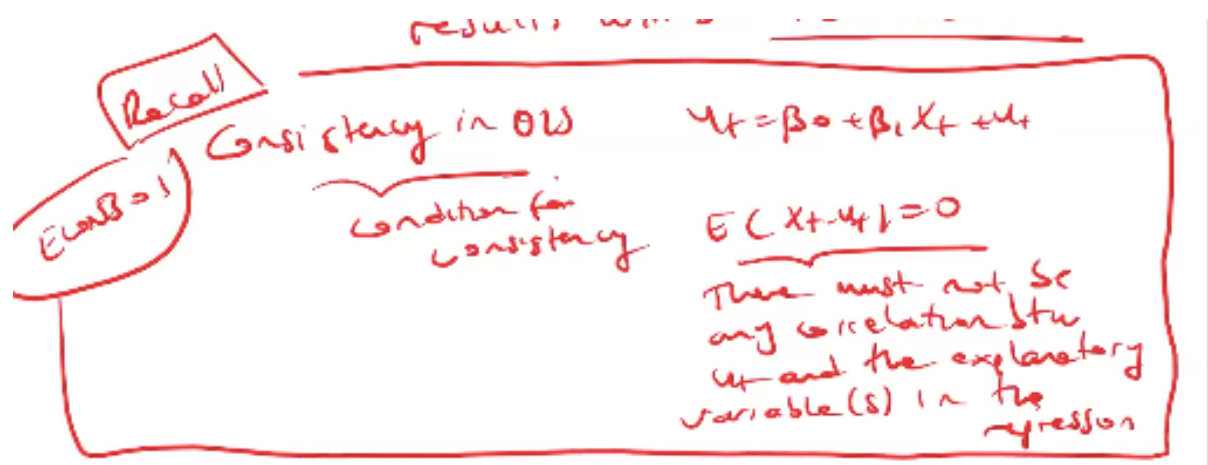 results
Recall
Consistency in OLS
Econ301
condition for
consistency
yt = β0 + β1 Xt + ut
E(Xt.ut) = 0
There must not be
any correlation btw
ut and the explanatory
variable(s) in the
regression